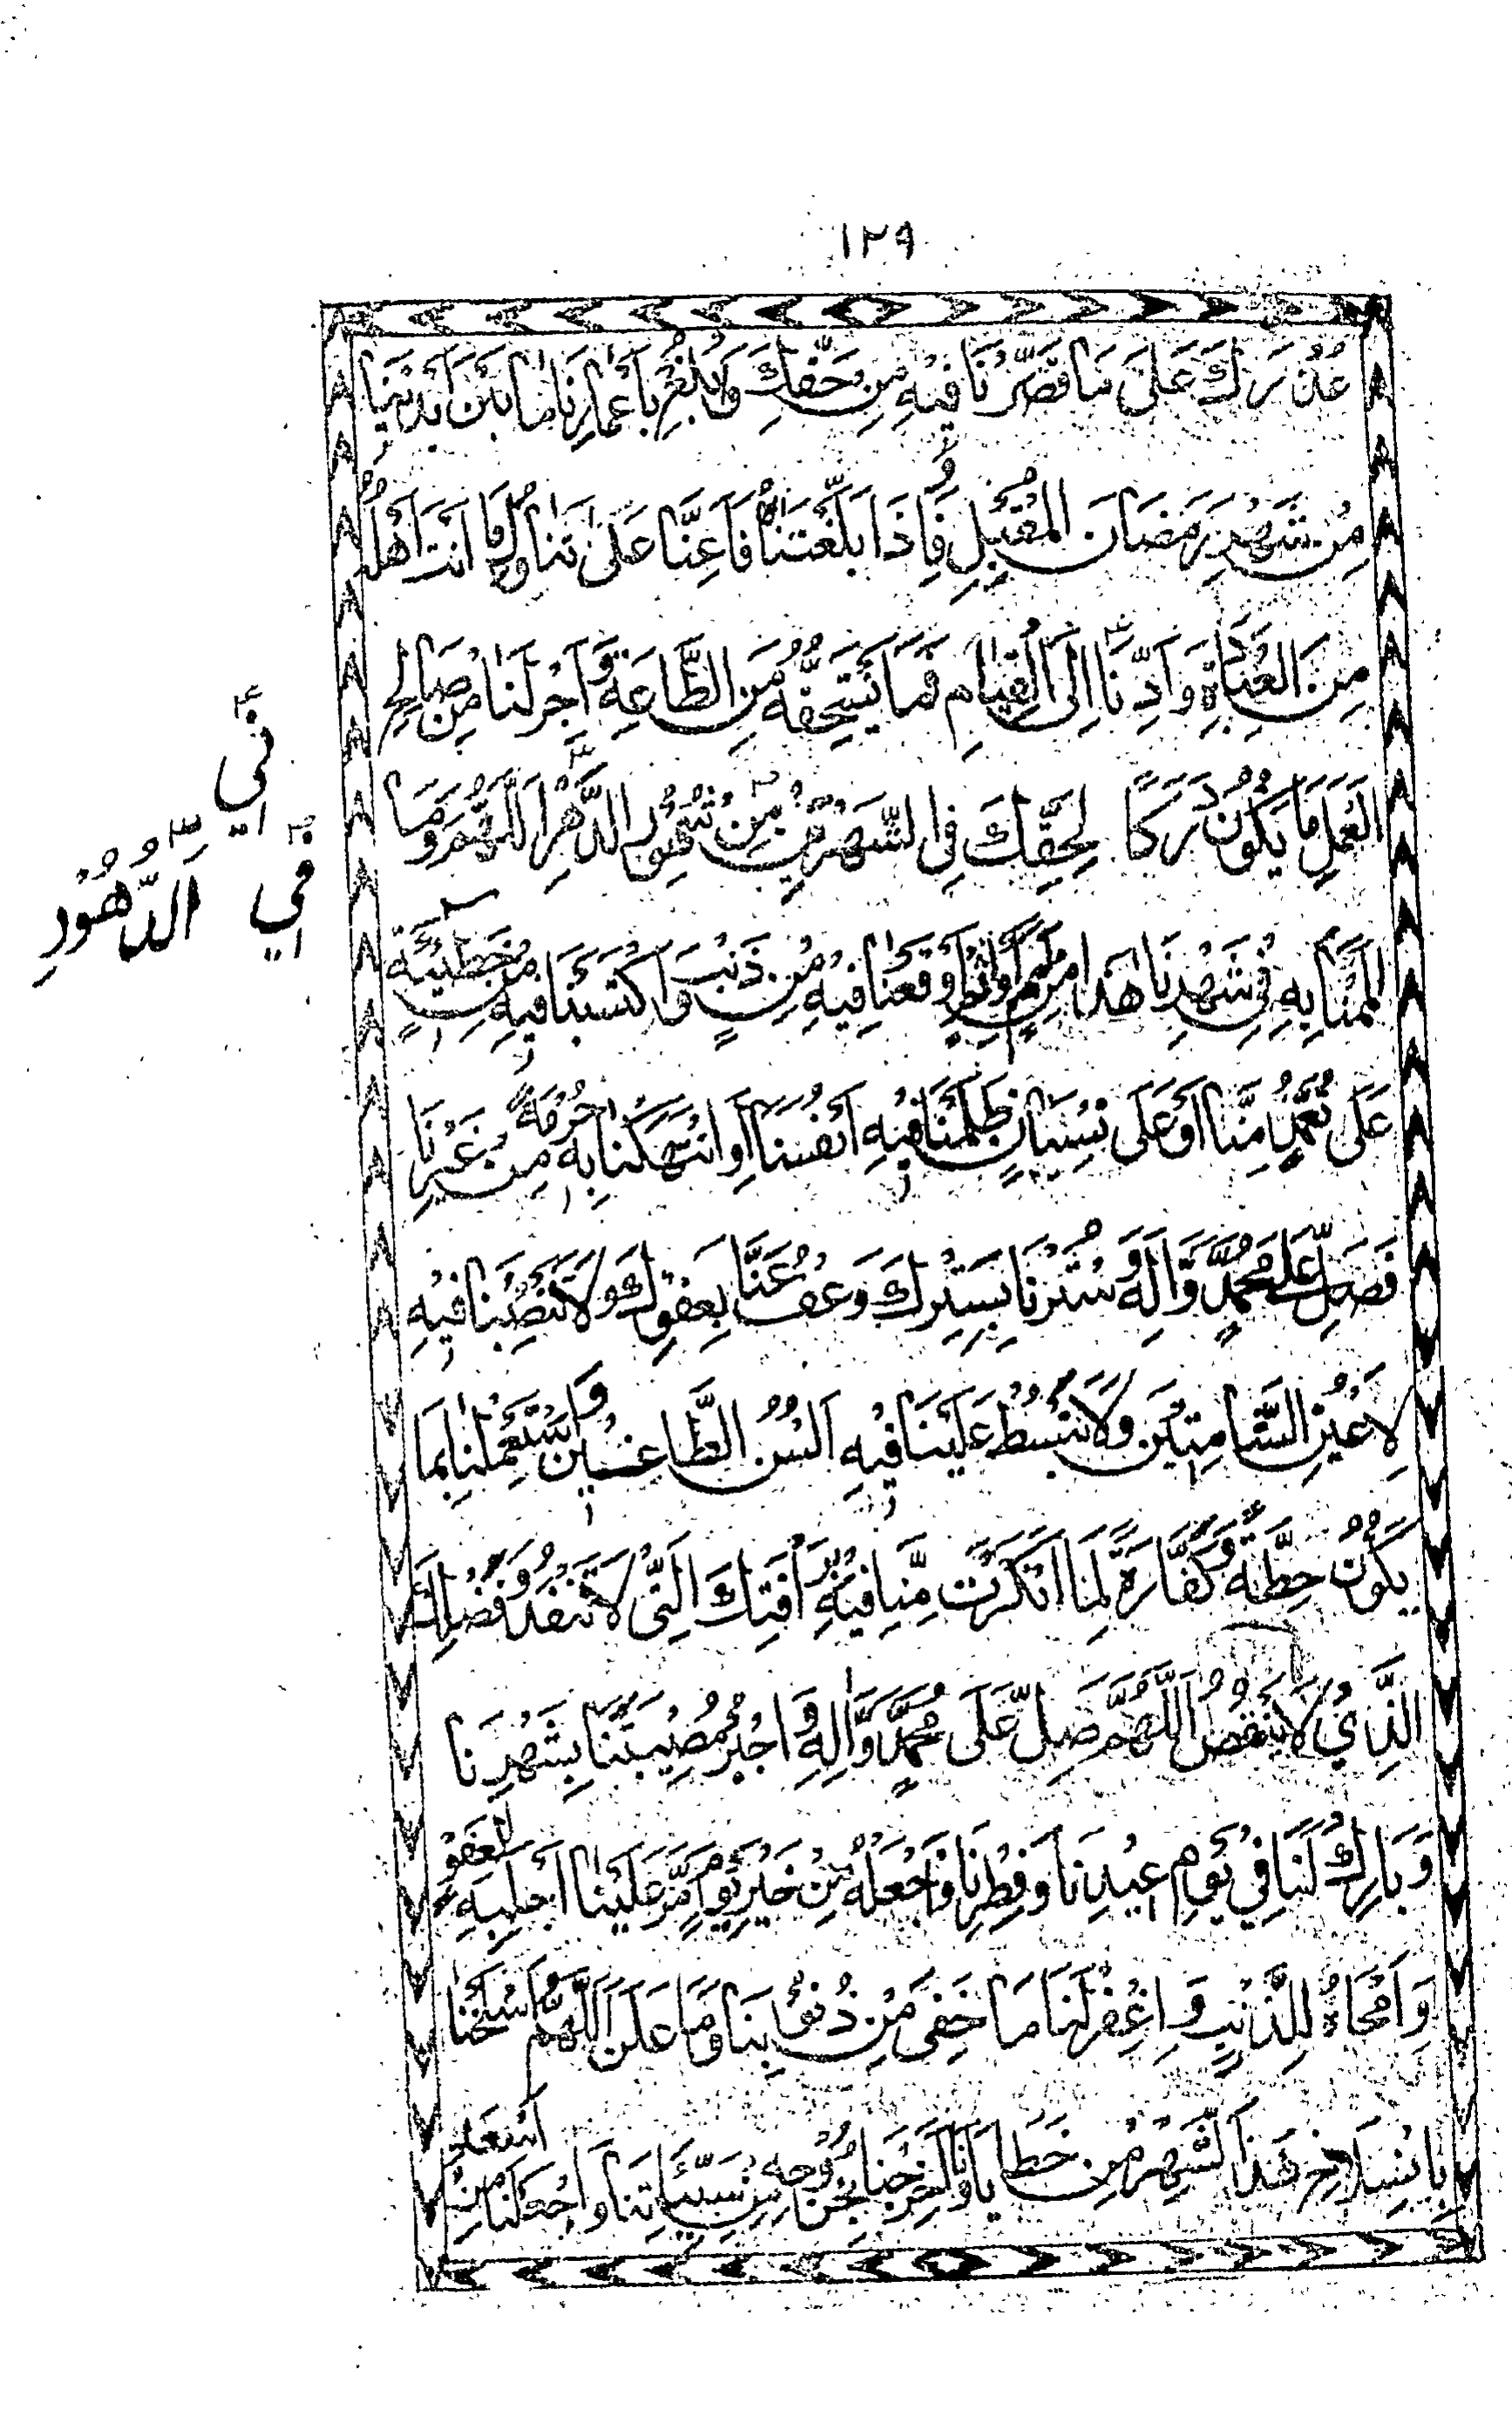 ١٢٩
عُذْرَكَ عَلَى مَا قَصَّرْنَا فِيهِ مِنْ حَقِّكَ وَابْلُغْ بِأَعْمَارِنَا مَا بَيْنَ أَيْدِيْنَا
مِنْ شَهْرِ رَمَضَانَ الْمُقْبِلِ فَإِذَا بَلَّغْتَنَاهُ فَأَعِنَّا عَلَى تَنَاوُلِ مَا أَنْتَ أَهْلُهُ
مِنَ الْعِبَادَةِ وَأَدِّنَا إِلَى الْقِيَامِ بِمَا يَسْتَحِقُّهُ مِنَ الطَّاعَةِ وَأَجْرِ لَنَا مِنْ صَالِحِ
الْعَمَلِ مَا يَكُونُ دَرَكًا لِحَقِّكَ فِي الشَّهْرَيْنِ مِنْ شُهُورِ الدَّهْرِ اَللّٰهُمَّ وَمَا
نِي
فِي الدُّهُورِ
أَلْمَمْنَا بِهِ فِي شَهْرِنَا هَذَا مِنْ لَمَمٍ أَوْ إِثْمٍ أَوْ وَقَعْنَا فِيهِ مِنْ ذَنْبٍ وَاكْتَسَبْنَا فِيهِ مِنْ خَطِيئَةٍ
عَلَى تَعَمُّدٍ مِنَّا أَوْ عَلَى نِسْيَانٍ ظَلَمْنَا فِيهِ أَنْفُسَنَا أَوِ انْتَهَكْنَا بِهِ حُرْمَةً مِنْ غَيْرِنَا
فَصَلِّ عَلَى مُحَمَّدٍ وَّآلِهِ وَ سْتُرْنَا بِسِتْرِكَ وَعْفُ عَنَّا بِعَفْوِكَ وَلَا تَنْصِبْنَا فِيهِ
لِأَعْيُنِ الشَّامِتِيْنَ وَلَا تَبْسُطْ عَلَيْنَا فِيْهِ أَلْسُنَ الطَّاعِنِينَ وَاسْتَعْمِلْنَا بِمَا
يَكُوْنُ حِطَّةً وَّكَفَّارَةً لِمَا أَنْكَرْتَ مِنَّا فِيْهِ بِرَأْفَتِكَ الَّتِي لَا تَنْفَدُ وَفَضْلِكَ
الَّذِيْ لَا يَنْقُصُ اَللّٰهُمَّ صَلِّ عَلَى مُحَمَّدٍ وَّآلِهِ وَاجْبُرْ مُصِيْبَتَنَا بِشَهْرِنَا
وَبَارِكْ لَنَا فِي يَوْمِ عِيْدِنَا وَفِطْرِنَا وَاجْعَلْهُ مِنْ خَيْرِ يَوْمٍ مَرَّ عَلَيْنَا أَجْلَبِهِ لِعَفْوٍ
وَأَمْحَاهُ لِلذَّنْبِ وَاغْفِرْ لَنَا مَا خَفِيَ مِنْ ذُنُوْبِنَا وَمَا عَلَنَ اَللّٰهُمَّ اسْلَخْنَا
بِانْسِلَاخِ هَذَا الشَّهْرِ مِنْ خَطَايَانَا وَأَخْرِجْنَا بِخُرُوْجِهِ مِنْ سَيِّئَاتِنَا وَاجْعَلْنَا مِنْ أَسْعَدِ